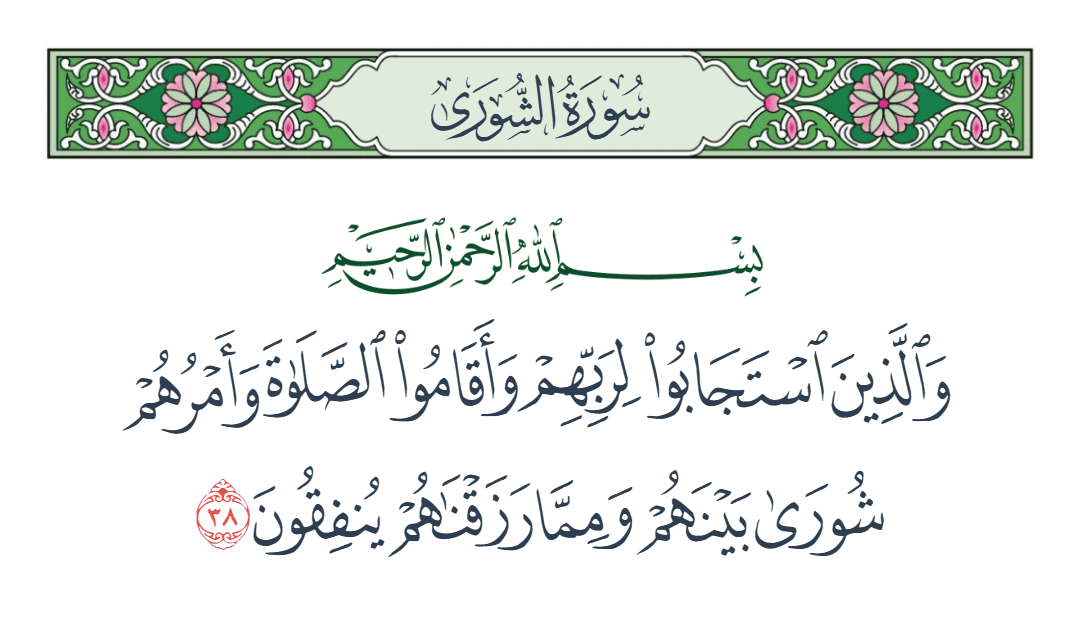 سُورَةُ الشُّورَىٰ
بِسْمِ ٱللَّهِ ٱلرَّحْمَٰنِ ٱلرَّحِيمِ
وَٱلَّذِينَ ٱسْتَجَابُوا۟ لِرَبِّهِمْ وَأَقَامُوا۟ ٱلصَّلَوٰةَ وَأَمْرُهُمْ
شُورَىٰ بَيْنَهُمْ وَمِمَّا رَزَقْنَٰهُمْ يُنفِقُونَ ٣٨